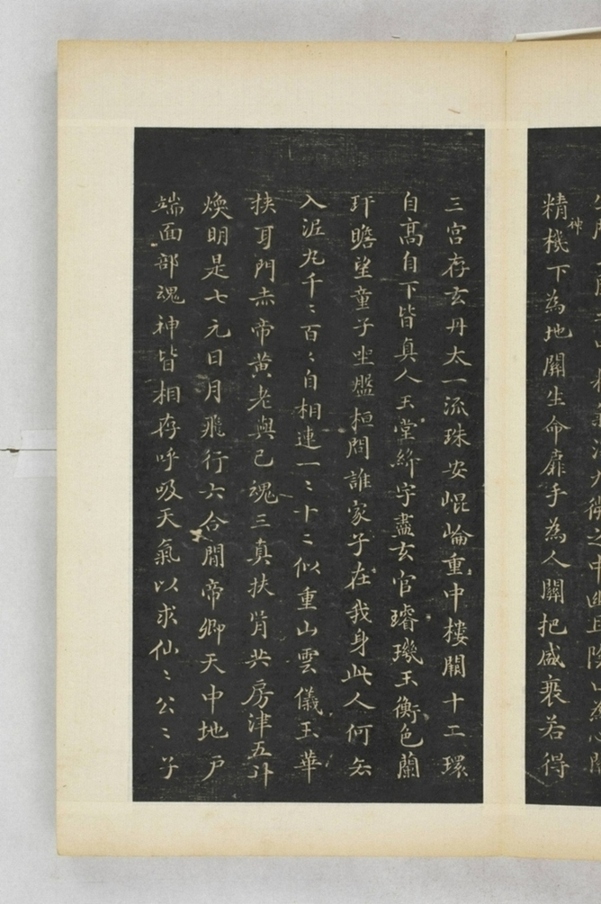 精神機下為地關生命扉手為人關把盛衰若得
三宮存玄丹太一流珠安崐崘重中樓閣十二環
自髙自下皆真人玉堂絳宇盡玄宫璿璣玉衡色蘭
玕瞻望童子坐盤桓問誰家子在我身此人何去
入泥丸千〻百〻自相連一〻十〻似重山雲儀玉華
挾耳門赤帝黄老與己魂三真扶胥共房津五斗
煥明是七元日月飛行六合間帝卿天中地戸
端面部魂神皆相存呼吸天氣以求仙〻公〻子